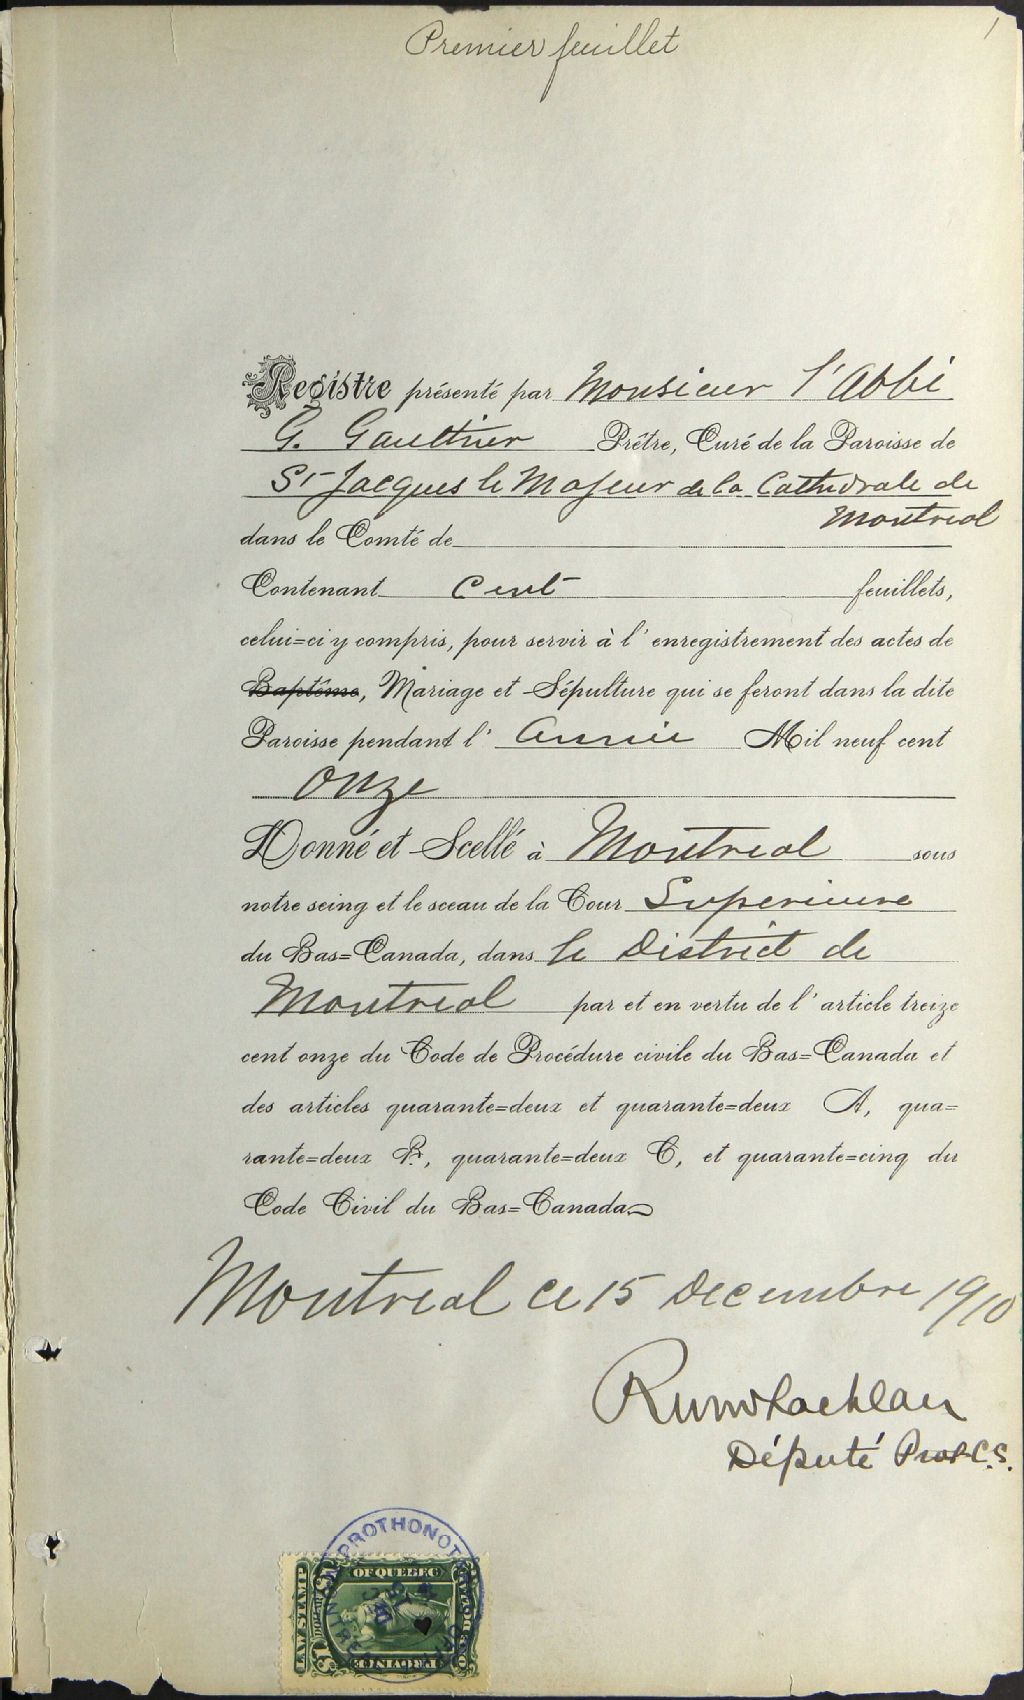 Premier feuillet
1
Registre présenté par Monsieur l'Abbé
G. Gaulthier Prêtre, Curé de la Paroisse de
St Jacques le Majeur de la Cathedrale de
Montreal
dans le Comté de
Contenant cent feuillets,
celui=ci y compris, pour servir à l'enregistrement des actes de
Baptême, Mariage et Sépulture qui se feront dans la dite
Paroisse pendant l'année Mil neuf cent
onze
Donné et Scellé à Montreal sous
notre seing et le sceau de la Cour Superieure
du Bas=Canada, dans le District de
Montreal par et en vertu de l'article treize
cent onze du Code de Procédure civile du Bas=Canada et
des articles quarante=deux et quarante=deux A, qua=
rante=deux B, quarante=deux C, et quarante=cinq du
Code Civil du Bas=Canada
Montreal ce 15 Decembre 1910
Député Prot C.S.
PROTHONOT
LAW STAMP
OF QUEBEC
PROVINCE
$1